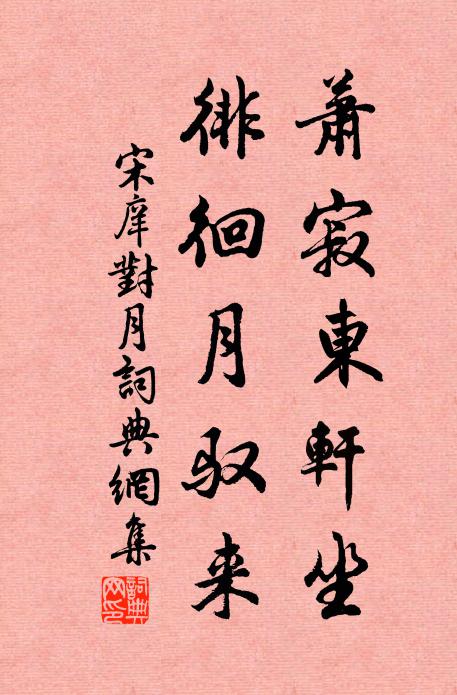 蕭寂東軒坐
徘徊月驭来
宋庠對月詞典網集
詞典網印